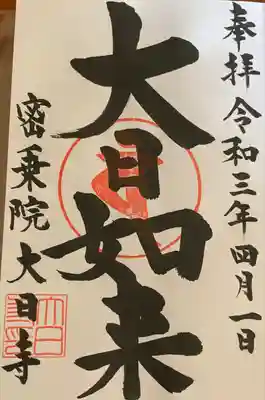 奉拝令和三年四月一日
大日如来
密乗院大日寺